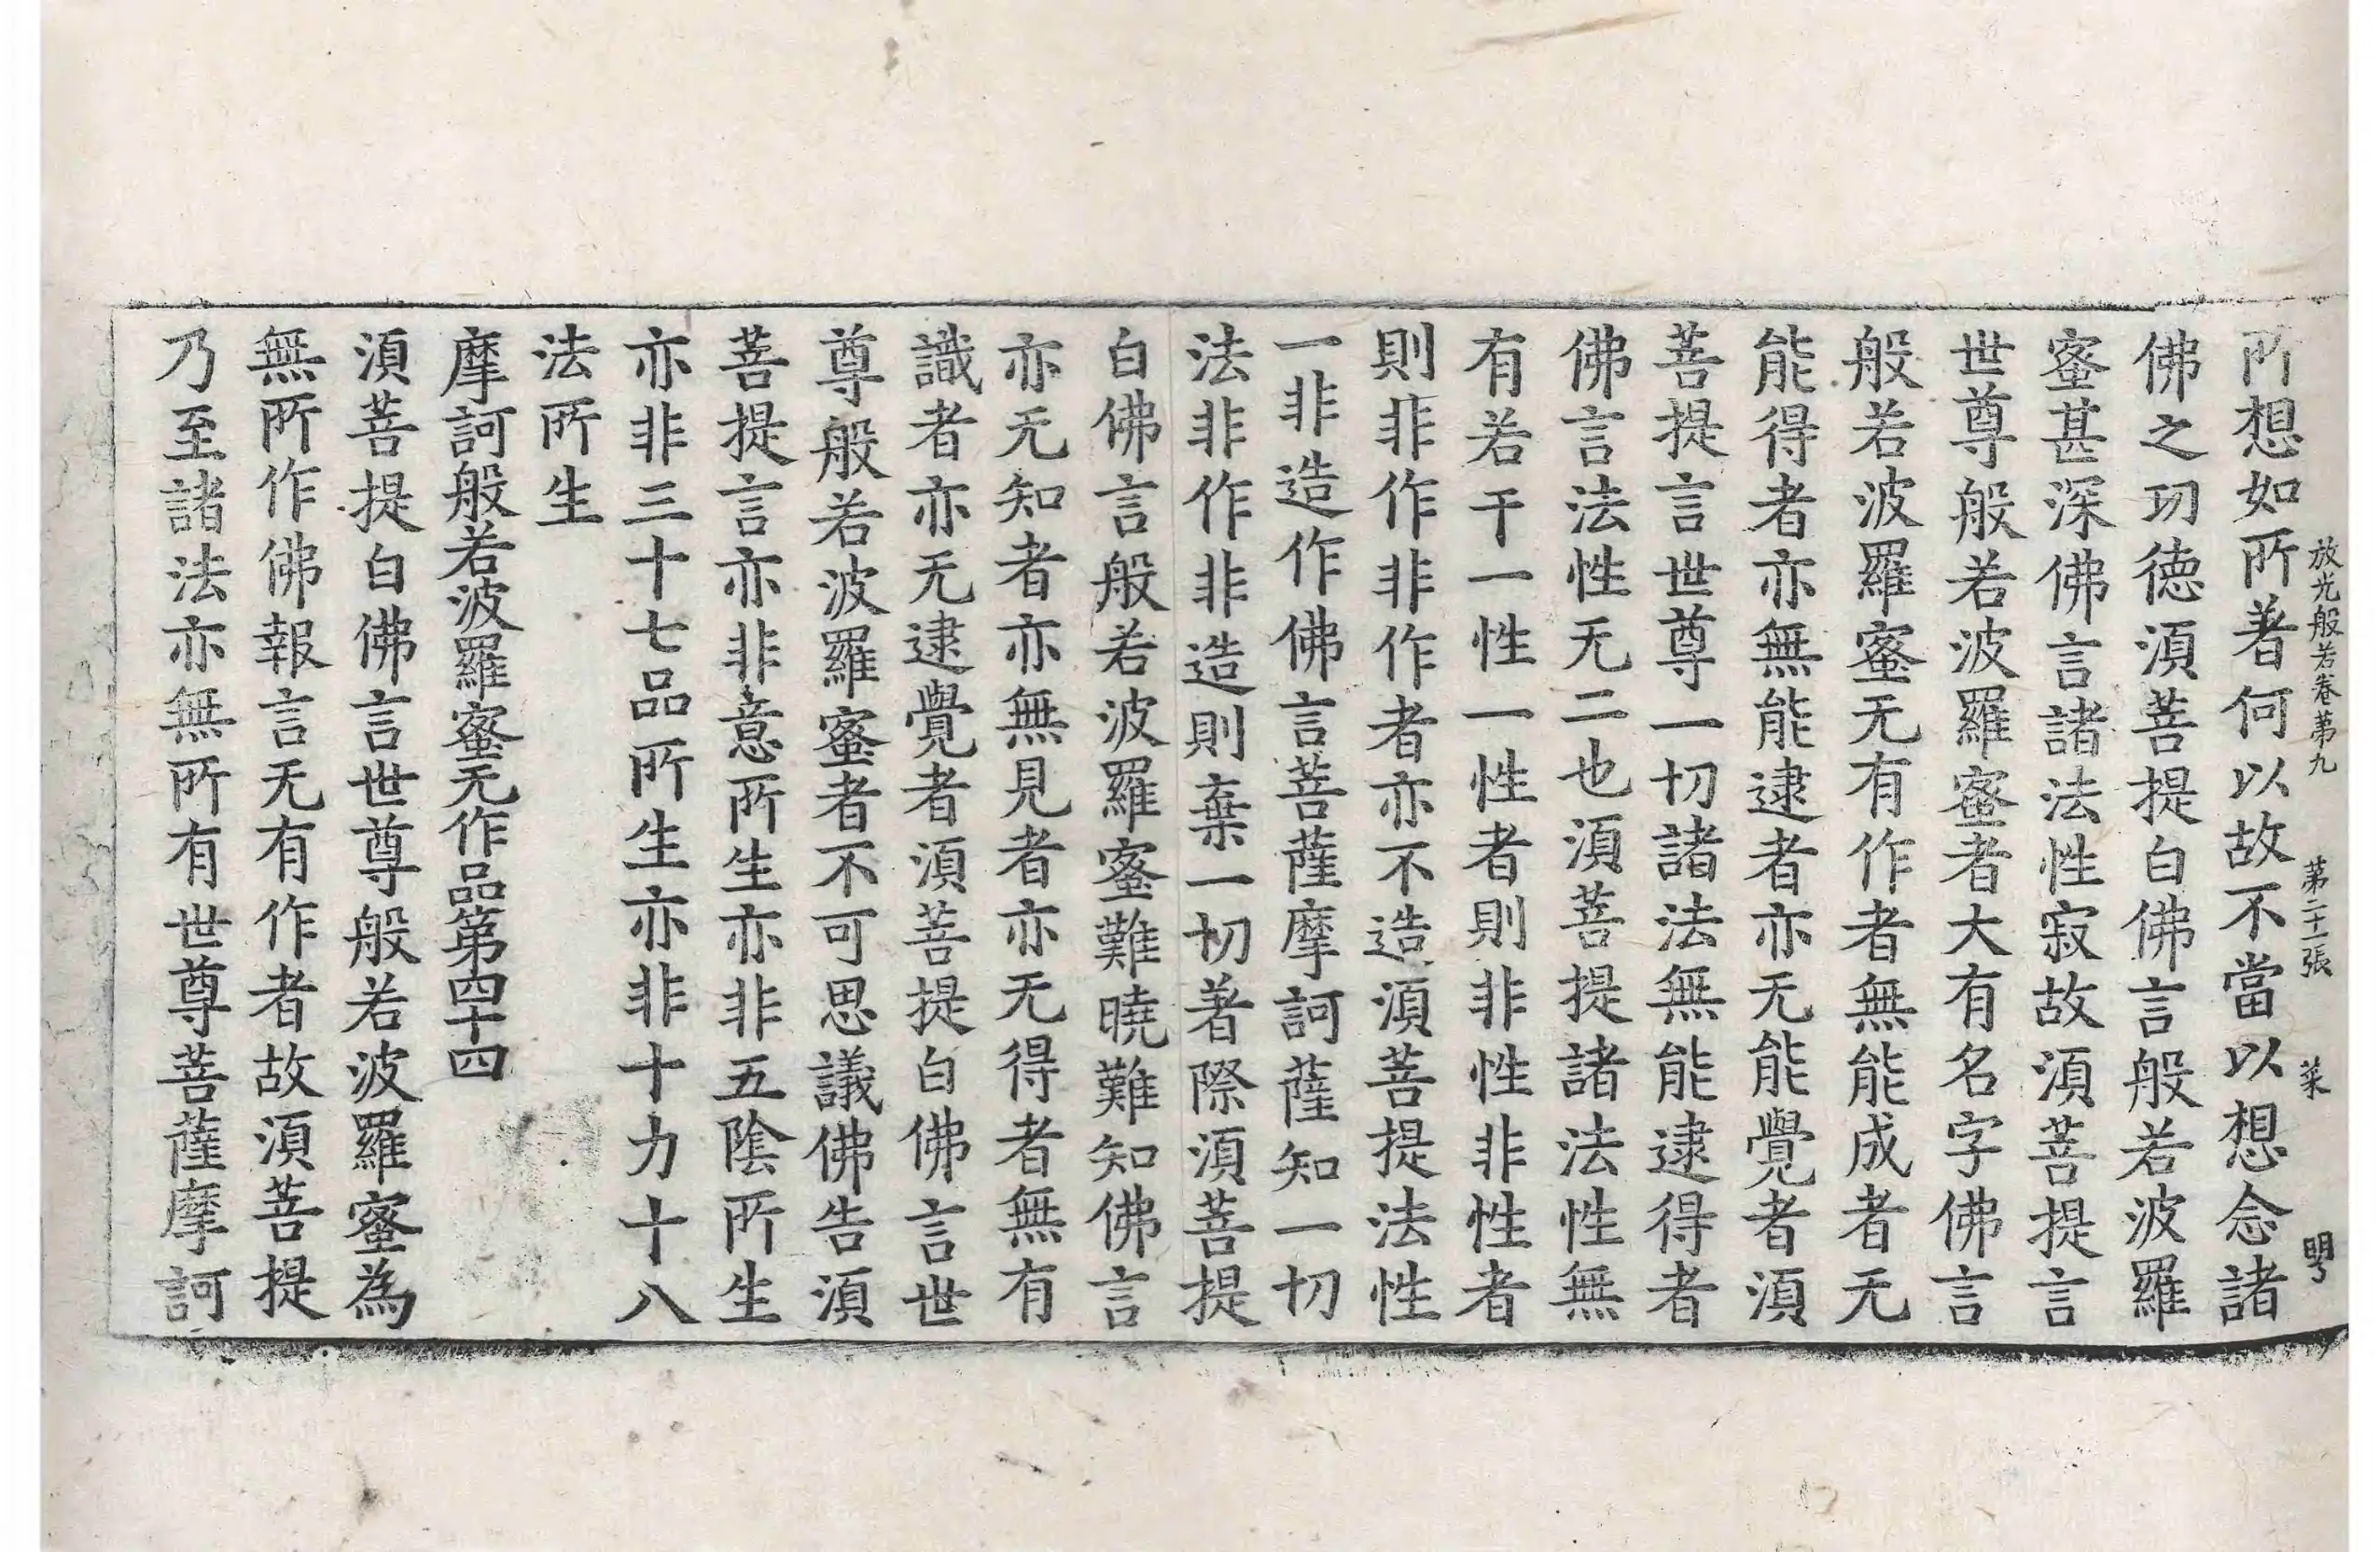 放光般若卷第九 第二十一張 菜 明
所想如所著何以故不當以想念諸
佛之㓛德湏菩提白佛言般若波羅
蜜甚深佛言諸法性寂故湏菩提言
世尊般若波羅蜜者大有名字佛言
般若波羅蜜无有作者無能成者无
能得者亦無能逮者亦无能覺者湏
菩提言世尊一切諸法無能逮得者
佛言法性无二也湏菩提諸法性無
有若干一性一性者則非性非性者
則非作非作者亦不造湏菩提法性
一非造作佛言菩薩摩訶薩知一切
法非作非造則棄一切著際湏菩提
白佛言般若波羅蜜難曉難知佛言
亦无知者亦無見者亦无得者無有
識者亦无逮覺者湏菩提白佛言世
尊般若波羅蜜者不可思議佛告湏
菩提言亦非意所生亦非五陰所生
亦非三十七品所生亦非十力十八
法所生
摩訶般若波羅蜜无作品第四十四
湏菩提白佛言世尊般若波羅蜜為
無所作佛報言无有作者故湏菩提
乃至諸法亦無所有世尊菩薩摩訶